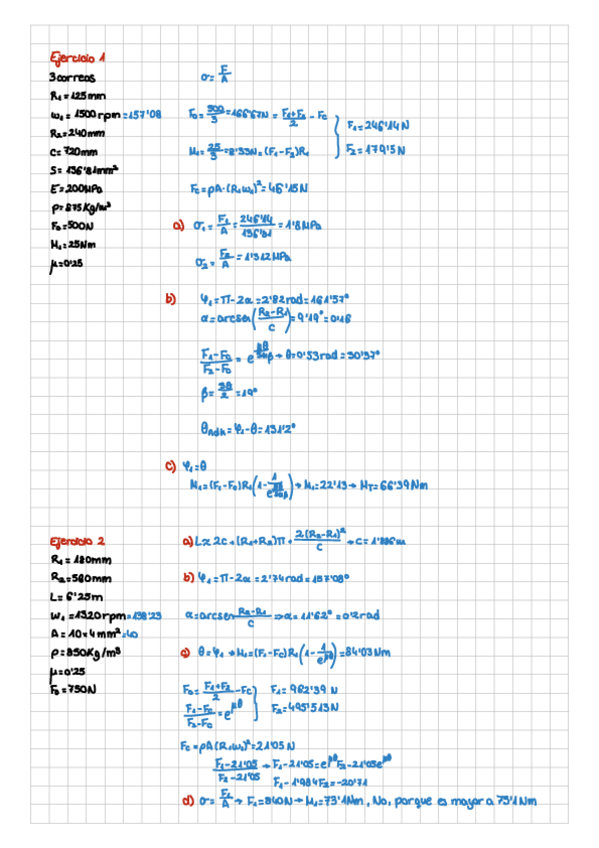 Ejercicio 1
3 correas
R₁ = 125mm
ω₁ = 1500 rpm = 157'08
R₂ = 240mm
C = 720mm
S = 136'81mm²
E = 200MPa
ρ = 875 Kg/m³
F₀ = 500N
M₁ = 25Nm
μ = 0'25
σ = F/A
F₀ = 500/3 = 166'67N = (F₁+F₂)/2 - Fc
F₁ = 246'14N
M₁ = 25/3 = 8'33N = (F₁-F₂)R₁
F₂ = 179'5N
Fc = ρA·(R₁ω₁)² = 46'15N
a) σ₁ = F₁/A = 246'14/136'81 = 1'8MPa
σ₂ = F₂/A = 1'312MPa
b) φ₁ = π-2α = 2'82rad = 161'57°
α = arcsen((R₂-R₁)/C) = 9'19° = 0'16
(F₁-Fc)/(F₂-Fc) = e^(μθ/senβ) → θ = 0'53rad = 30'37°
β = 38/2 = 19°
θAdh = φ₁-θ = 131'2°
c) φ₁ = θ
M₁ = (F₁-Fc)R₁(1-1/e^(μθ/senβ)) → M₁ = 22'13 → MT = 66'39Nm
Ejercicio 2
R₁ = 180mm
R₂ = 560mm
L = 6'25m
ω₁ = 1320rpm = 138'23
A = 10×4mm² = 40
ρ = 850Kg/m³
μ = 0'25
F₀ = 750N
a) L ≈ 2c + (R₁+R₂)π + 2(R₂-R₁)²/C → C = 1'886m
b) φ₁ = π-2α = 2'74rad = 157'08°
α = arcsen (R₂-R₁)/C ⇒ α = 11'62° = 0'2rad
c) θ = φ₁ → M₁ = (F₁-Fc)R₁(1-1/e^(μθ)) = 84'03Nm
F₀ = (F₁+F₂)/2 - Fc
F₁ = 962'39 N
(F₁-Fc)/(F₂-Fc) = e^(μθ)
F₂ = 495'513N
Fc = ρA(R₁ω₁)² = 21'05N
(F₁-21'05)/(F₂-21'05) → F₁-21'05 = e^(μθ)F₂-21'05e^(μθ)
F₁-1'984F₂ = -20'71
d) σ = F₁/A → F₁ = 840N → M₁ = 73'1Nm, No, porque es mayor a 73'1Nm